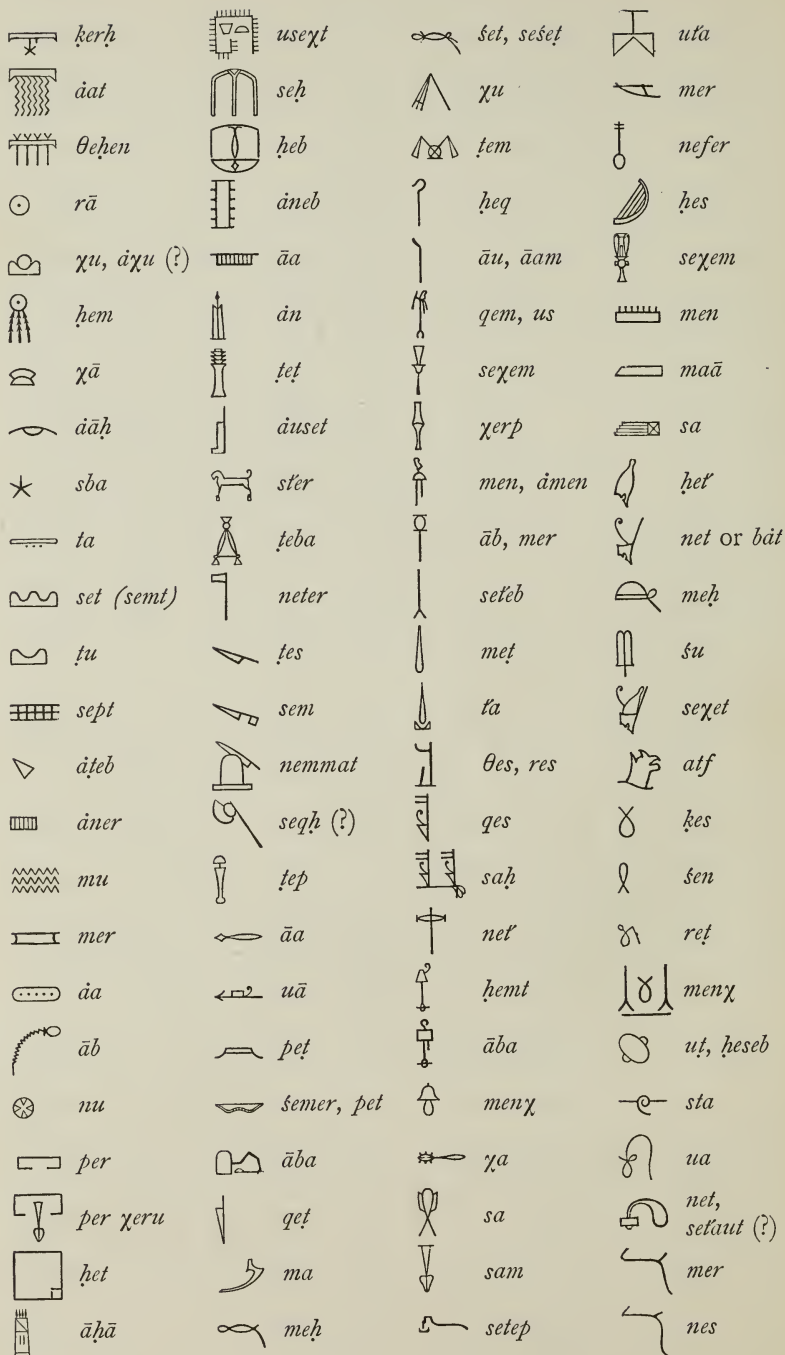 ḳerḥ
ȧat
θeḥen
rā
χu, ȧχu (?)
ḥem
χā
ȧāḥ
sba
ta
set (semt)
ṭu
sept
ȧṭeb
ȧner
mu
mer
ȧa
āb
nu
per
per χeru
ḥet
āḥā
useχt
seḥ
ḥeb
ȧneb
āa
ȧn
ṭeṭ
ȧuset
st́er
ṭeba
neter
ṭes
sem
nemmat
seqḥ (?)
ṭep
āa
uā
peṭ
śemer, pet
āba
qeṭ
ma
meh
śet, seśeṭ
χu
ṭem
ḥeq
āu, āam
qem, us
seχem
χerp
men, ȧmen
āb, mer
set́eb
meṭ
t́a
θes, res
qes
saḥ
net́
ḥemt
āba
menχ
χa
sa
sam
setep
ut́a
mer
nefer
ḥes
seχem
men
maā
sa
ḥet́
net or bȧt
meḥ
śu
seχet
atf
ḳes
śen
reṭ
menχ
uṭ, ḥeseb
sta
ua
net,
set́aut (?)
mer
nes